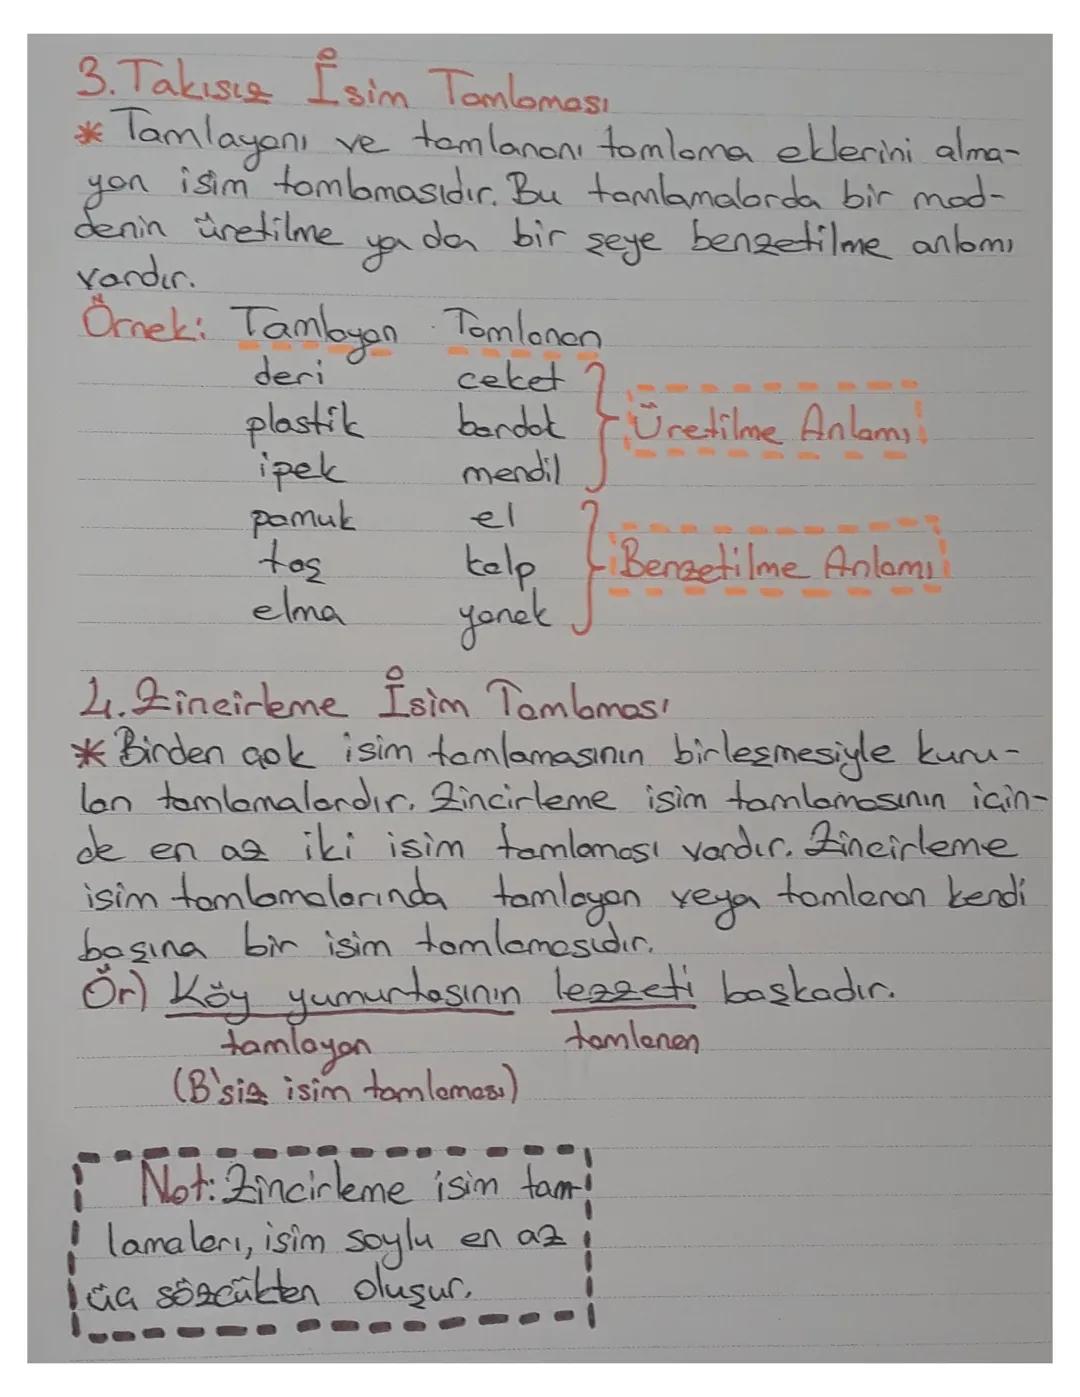 3. Takısız İsim Tamlaması
* Tamlayanı ve tamlananı tamlama eklerini alma-
yan isim tamlamasıdır. Bu tamlamalarda bir mad-
denin üretilme ya da bir şeye benzetilme anlamı
vardır.
Örnek: Tamlayan Tamlanan
deri ceket
plastik bardak Üretilme Anlamı
ipek mendil
pamuk el
taş kalp Benzetilme Anlamı
elma yanak
4. Zincirleme İsim Tamlaması
* Birden çok isim tamlamasının birleşmesiyle kuru-
lan tamlamalardır. Zincirleme isim tamlamasının için-
de en az iki isim tamlaması vardır. Zincirleme
isim tamlamalarında tamlayan veya tamlanan kendi
başına bir isim tamlamasıdır.
Ör) Köy yumurtasının lezzeti başkadır.
tamlayan tamlanan
(B'siz isim tamlaması)
Not: Zincirleme isim tam-
lamaları, isim soylu en az
üç sözcükten oluşur.